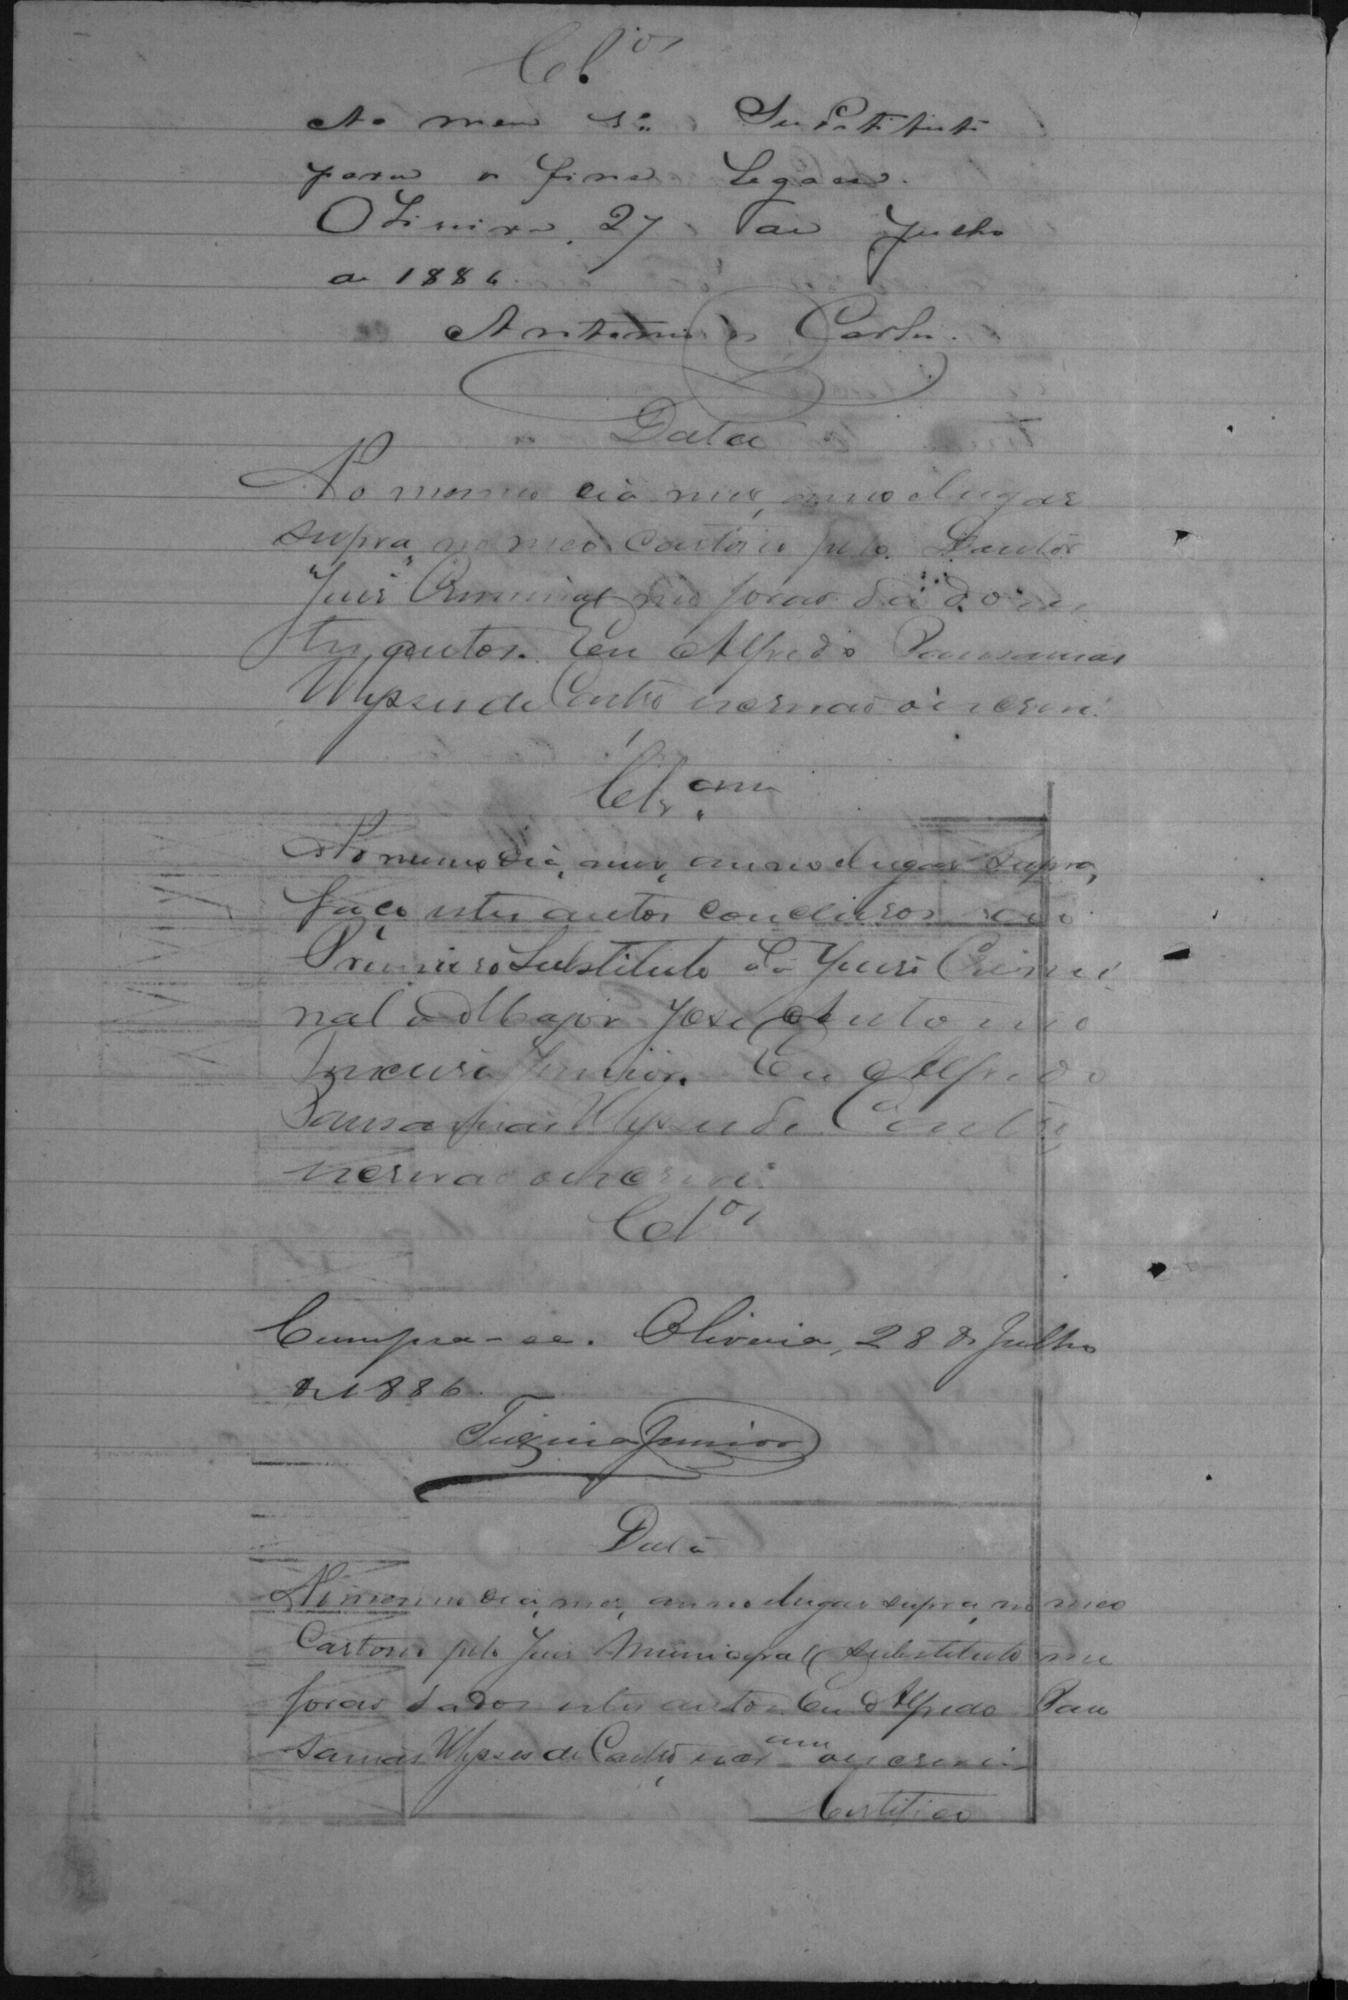 Cl.os
Ao meu 1º Substituto
para os fins legaes.
Oliveira, 27 de Julho
de 1886.
Antonio Carlos.
Data
No mesmo dia, mes, anno e lugar
supra, no meo cartorio pelo Doutor
Juis Criminal me forão dados es
tes autos. Eu Alfredo Pausanias
Ulysses de Castro escrivão o escrevi.
Cls.am
No mesmo dia, mes, anno e lugar supra,
faço estes autos conclusos ao
Primeiro Substituto do Juis Crimi
nal o Major José Antonio
Teixeira Junior. Eu Alfredo
Pausanias Ulysses de Castro
escrivão o escrevi.
Cl.os
Cumpra-se. Oliveira, 28 de Julho
de 1886.
Teixeira Junior
Data
No mesmo dia, mes, anno e lugar supra, no meo
Cartorio pelo Juis Municipal substituto me
forão dados estes autos. Eu Alfredo Pau
sanias Ulysses de Castro, escr.am o escrevi.
Certifico